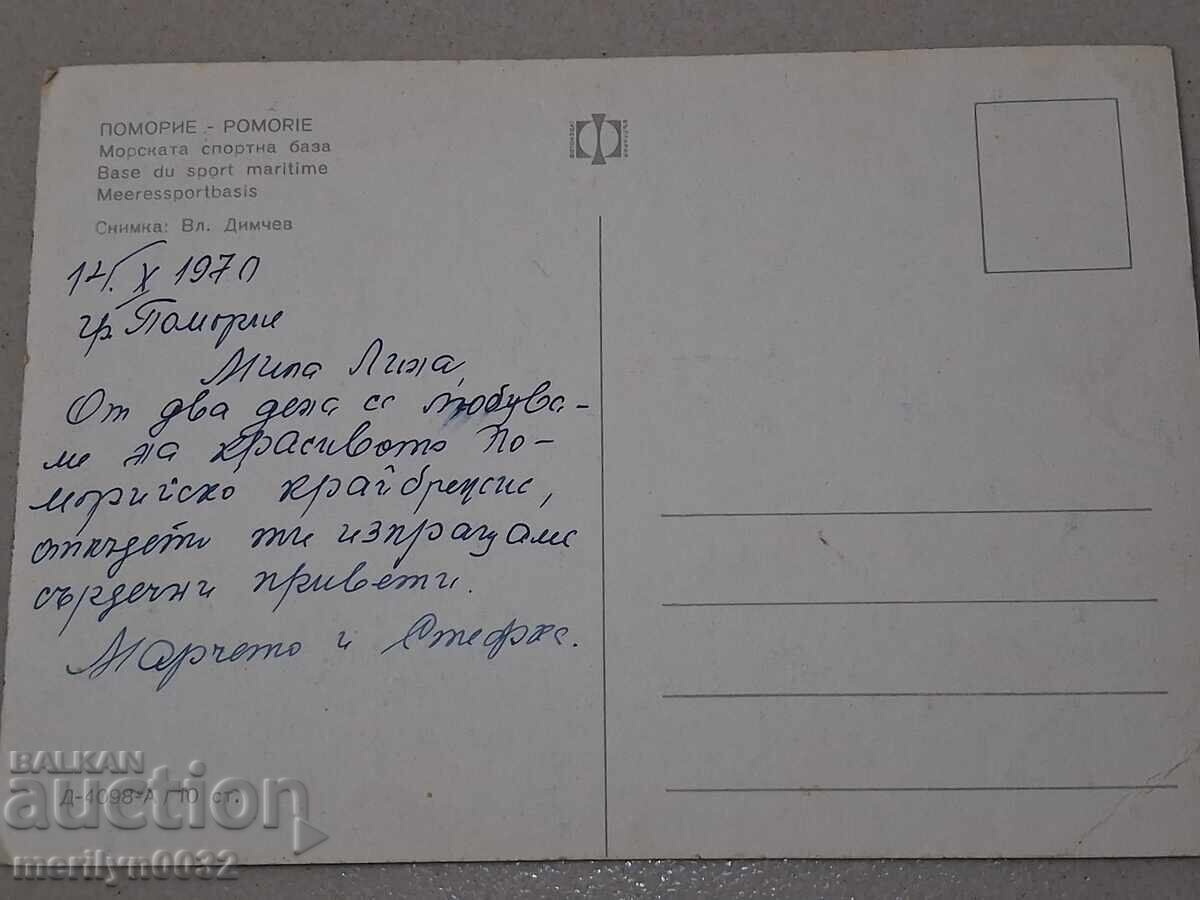 ПОМОРИЕ - POMORIE
Морската спортна база
Base du sport maritime
Meeressportbasis
Снимка: Вл. Димчев
X 1970
гр. Поморие
Мила Лина,
От два дена се любува-
ме на красивото По-
морийско крайбрежие,
откъдето ти изпращаме
сърдечни привети.
Марчето и Стефка.
Д-4098-А / 10 ст.
BALKAN
auction
merilyn0032